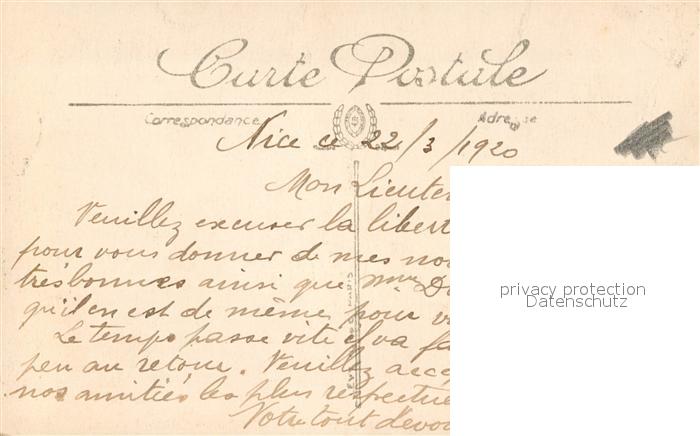 Carte Postale
Correspondance
Adresse
Nice ce 22/3/1920
Mon Lieuten
Veuillez excuser la libert
pour vous donner de mes nou
très bonnes ainsi que Mme Du
qu'il en est de même pour v
Le temps passe vite il va fa
peu au retour. Veuillez acce
nos amitiés les plus respectue
Votre tout dévou
privacy protection
Datenschutz